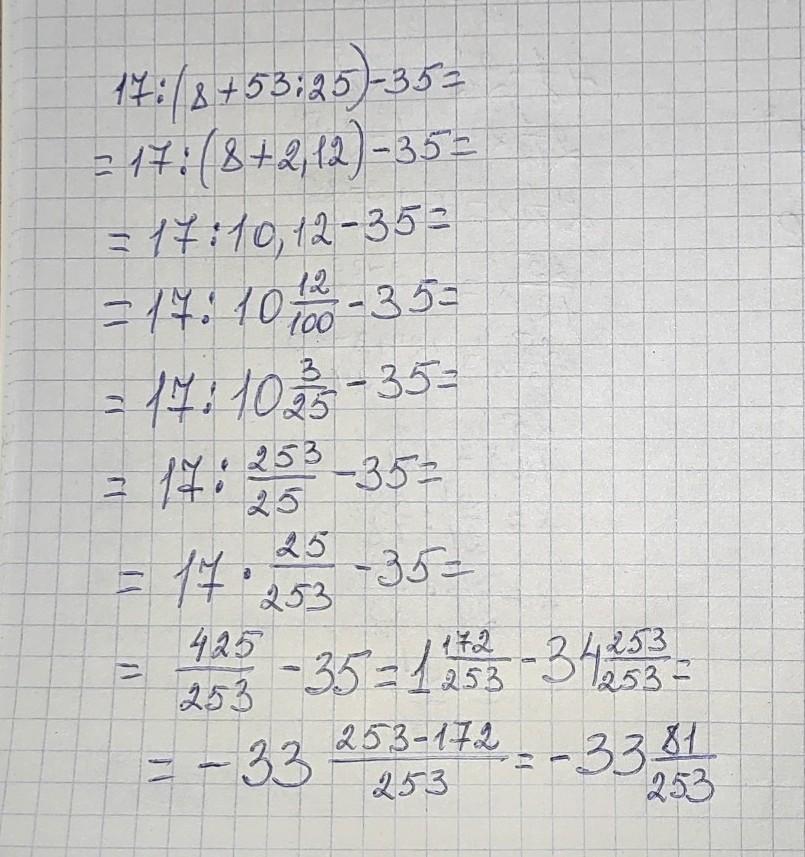 17:(8+53:25)-35=
=17:(8+2,12)-35=
=17:10,12-35=
=17:10 12/100-35=
=17:10 3/25-35=
=17:253/25-35=
=17·25/253-35=
=425/253-35=1 172/253-34 253/253=
=-33 (253-172)/253=-33 81/253